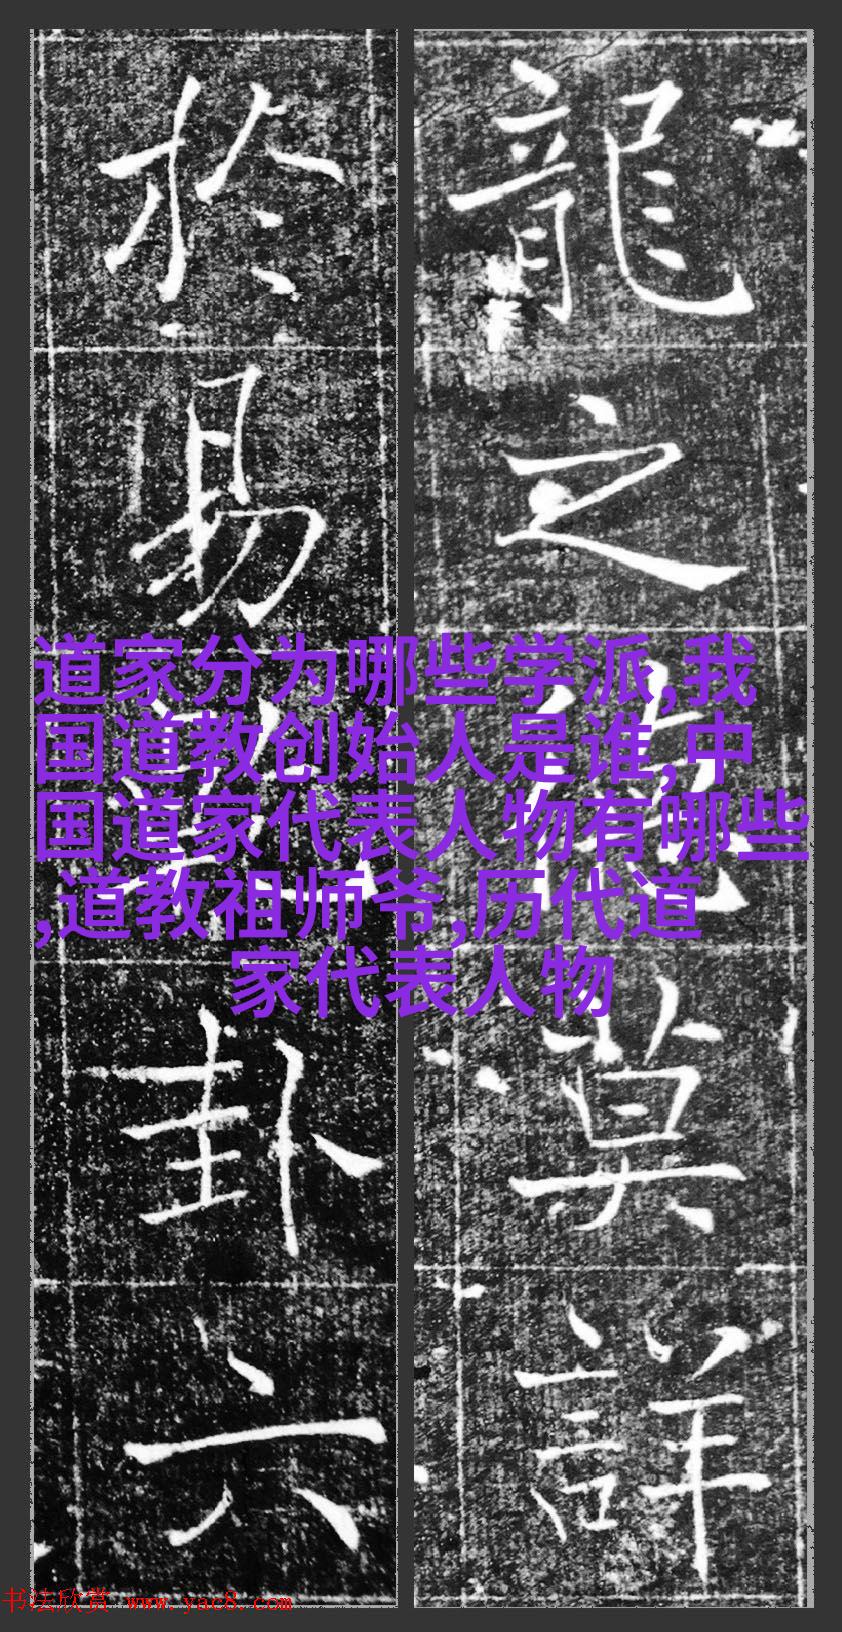 龍之
莫詳
於易
卦六
道家分为哪些学派,我
国道教创始人是谁,中
国道家代表人物有哪些
,道教祖师爷,历代道
家代表人物
书法欣赏 www.yac8.com